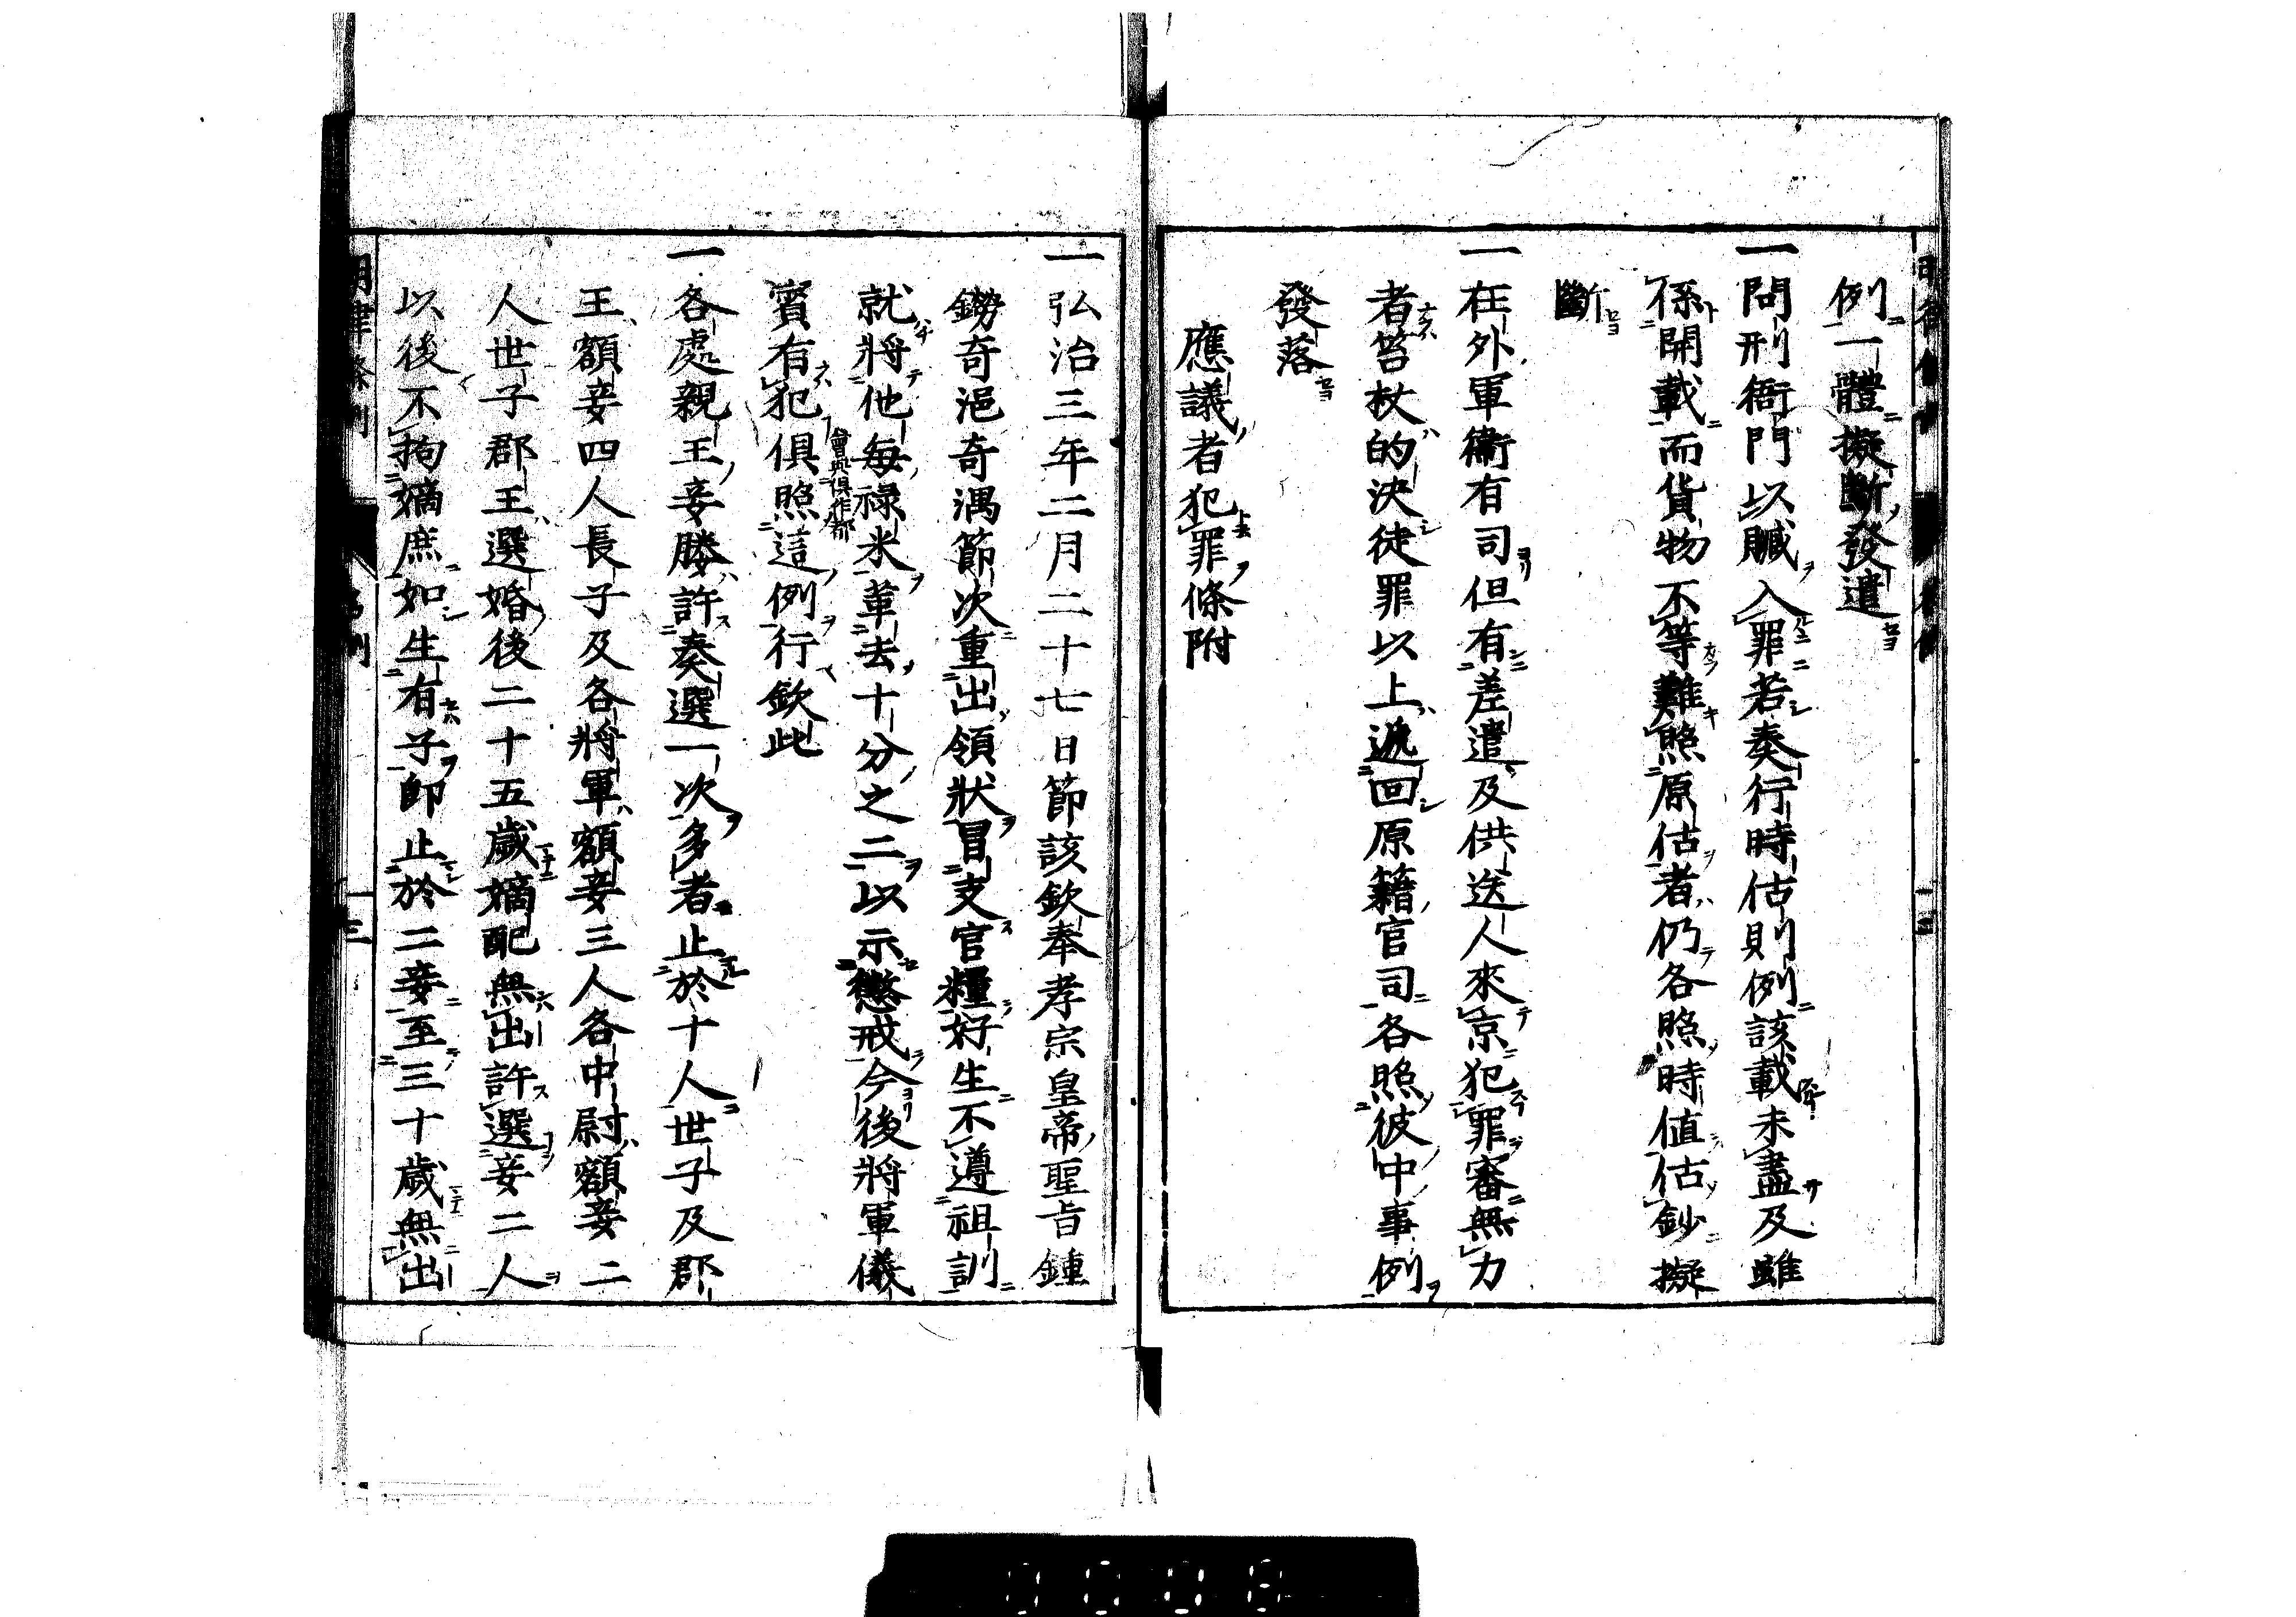 例一體擬斷發遣
一問刑衙門以贓入罪若奏行時估則例該載未盡及雖
係開載而貨物不等難照原估者仍各照時值估鈔擬
斷
一在外軍衞有司但有差遣及供送人來京犯罪審無力
者笞杖的決徒罪以上遞回原籍官司各照彼中事例
發落
應議者犯罪條附
一弘治三年二月二十七日節該欽奉孝宗皇帝聖旨鍾
鐒奇浥奇渪節次重出領狀冒支官糧好生不遵祖訓
就將他每祿米革去十分之二以示懲戒今後將軍儀
賓有犯俱照這例行欽此
會典俱作都
一各處親王妾媵許奏選一次多者止於十人世子及郡
王額妾四人長子及各將軍額妾三人各中尉額妾二
人世子郡王選婚後二十五歲嫡配無出許選妾二人
以後不拘嫡庶如生有子即止於二妾至三十歲無出
明律條例
名例
三